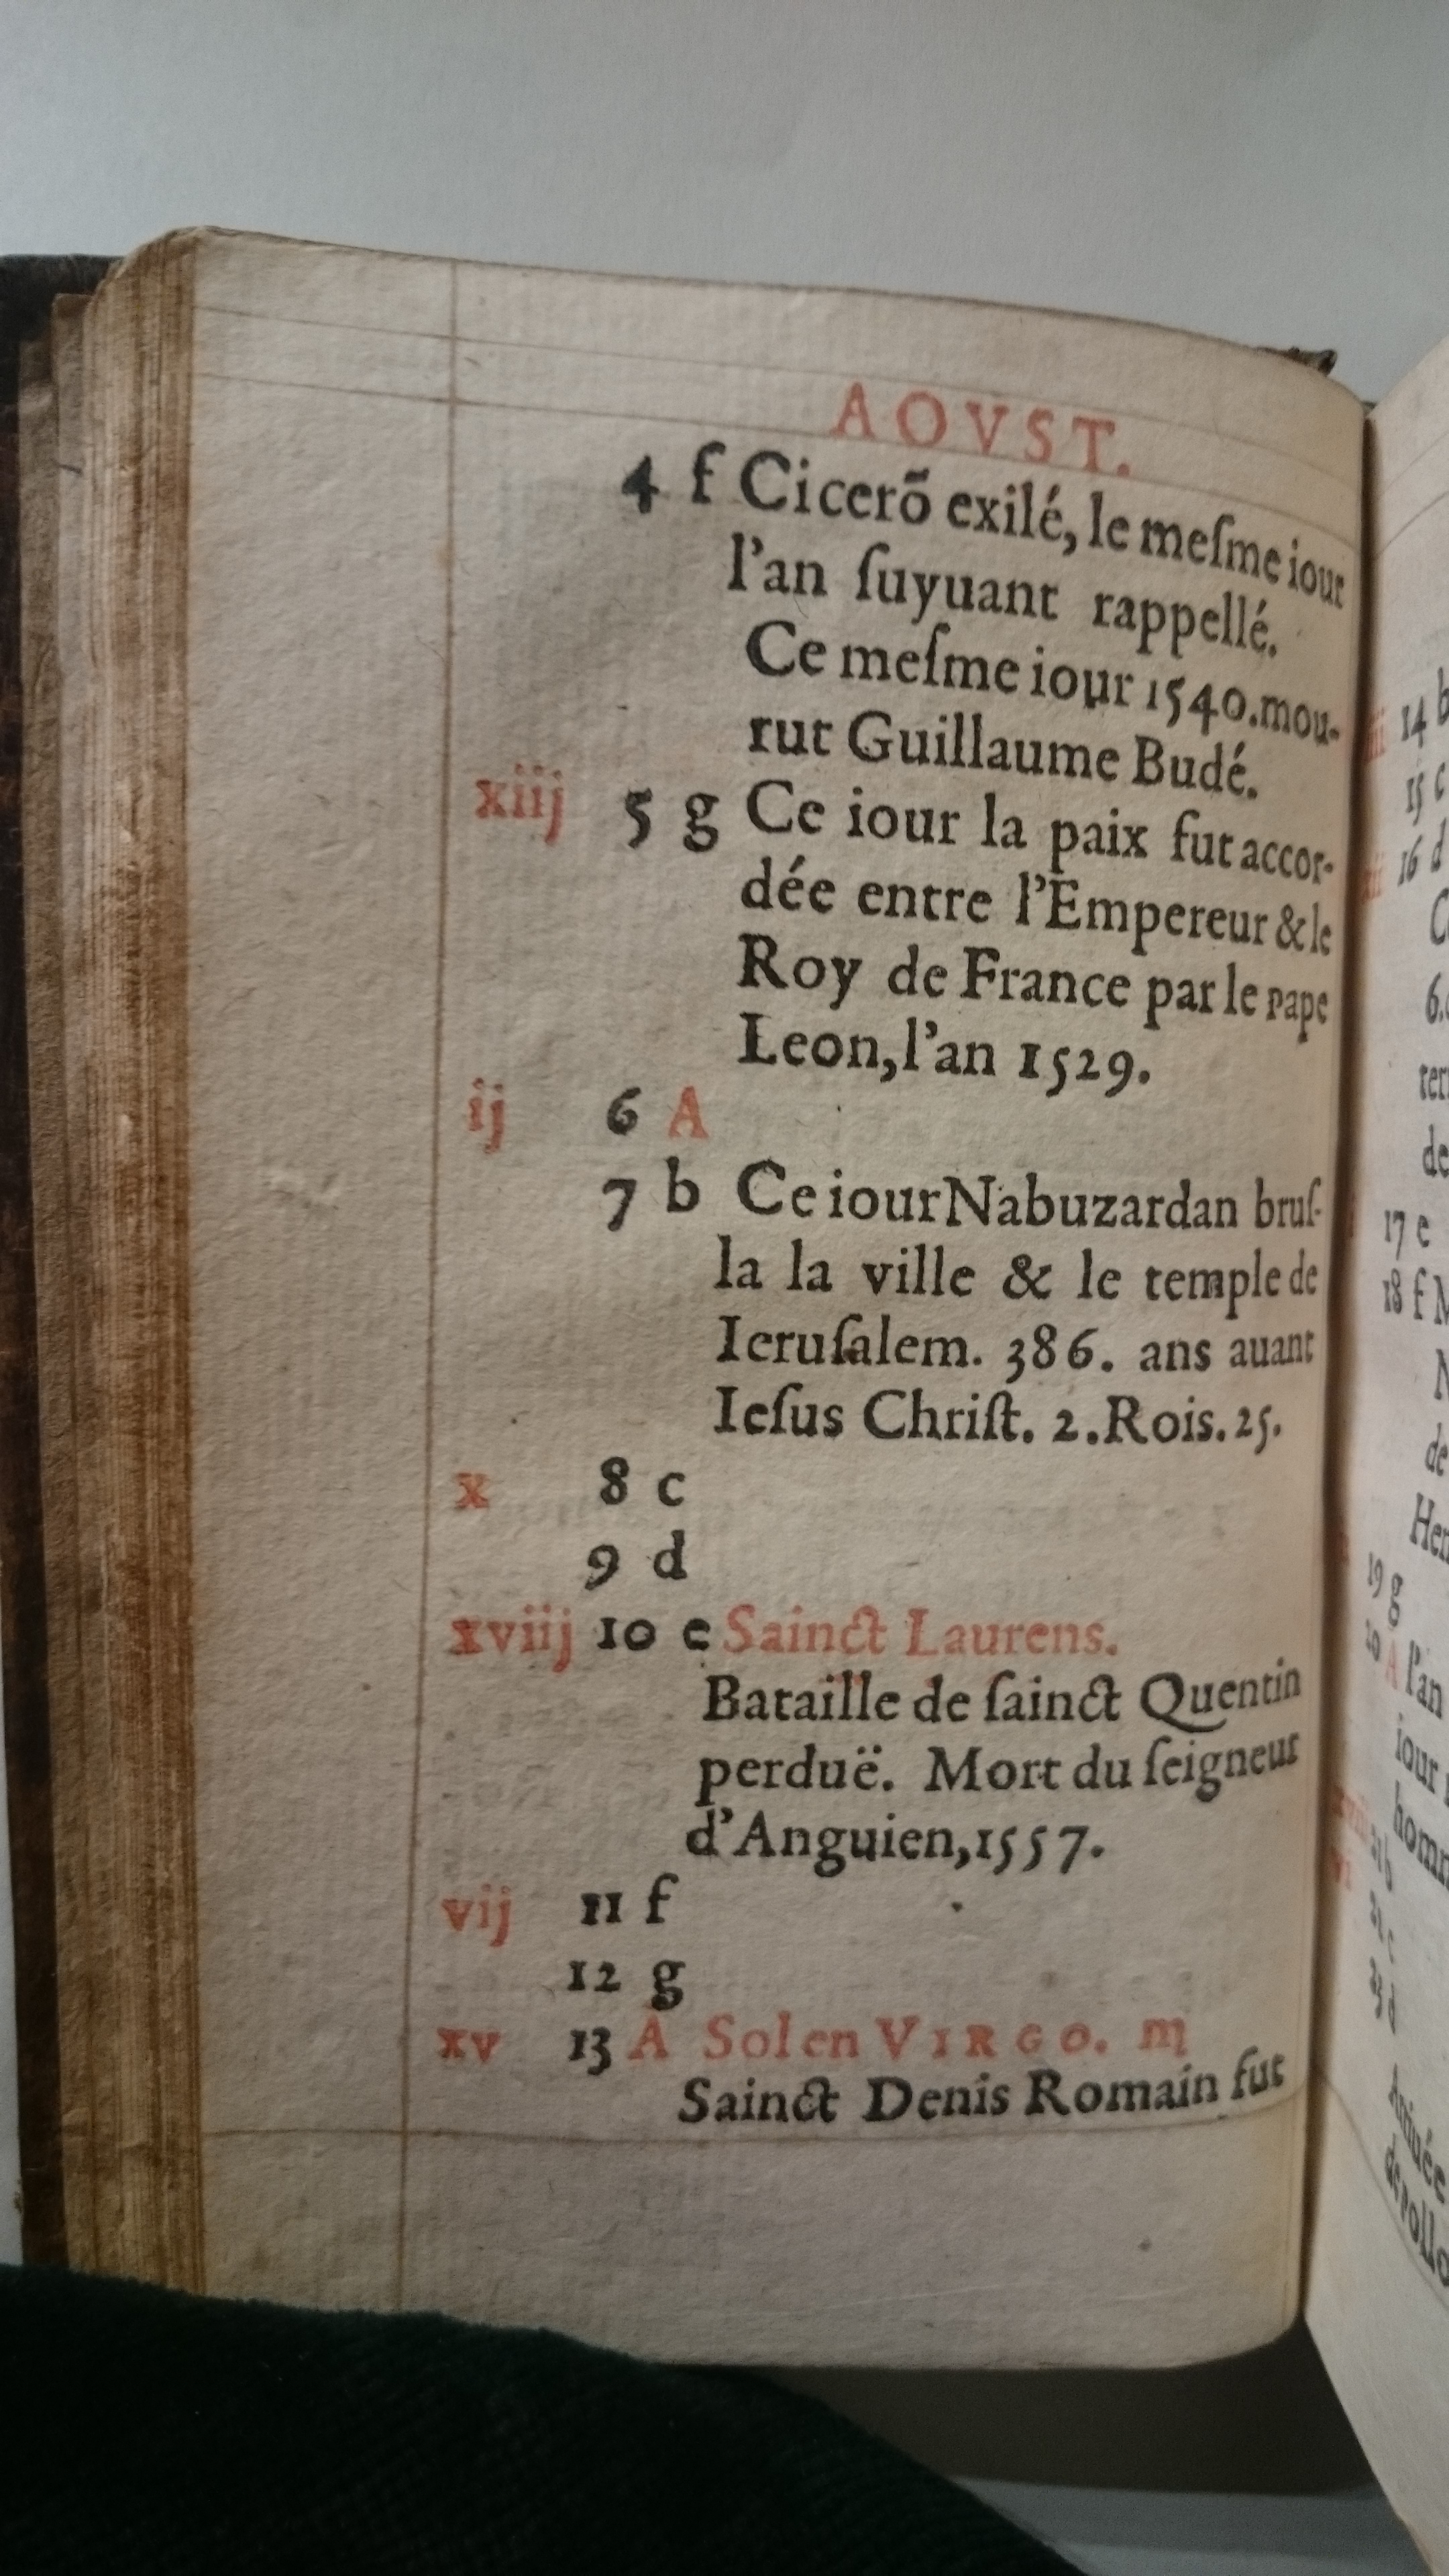 AOVST.
4 f Cicerõ exilé, le meſme iour
l'an ſuyuant rappellé.
Ce meſme iour 1540.mou-
rut Guillaume Budé.
xiij 5 g Ce iour la paix fut accor-
dée entre l'Empereur & le
Roy de France par le pape
Leon,l'an 1529.
ij 6 A
7 b Ce iour Nabuzardan bruſ-
la la ville & le temple de
Ieruſalem. 386. ans auant
Ieſus Chriſt. 2.Rois.25.
x 8 c
9 d
xviij 10 e Sainct Laurens.
Bataille de ſainct Quentin
perduë. Mort du ſeigneur
d'Anguien,1557.
vij 11 f
12 g
xv 13 A Sol en VIRGO. ♍
Sainct Denis Romain fut
14 b
15 c
16 d
17 e
18 f
19 g
A l'an
iour